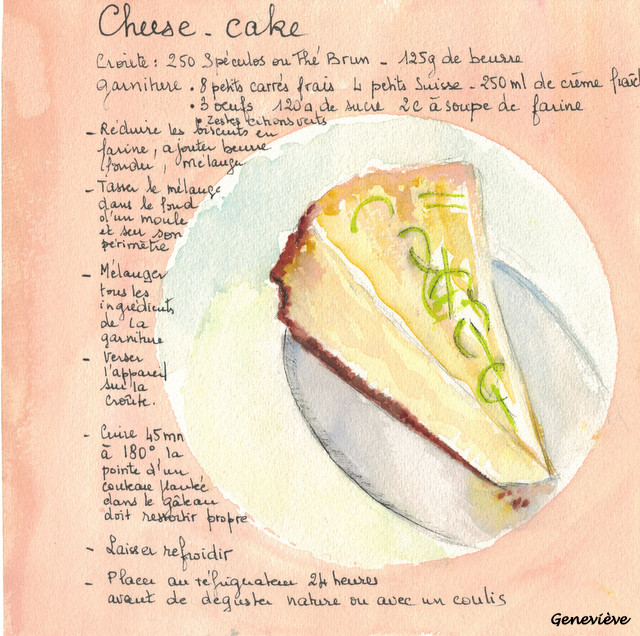 Cheese - cake
Croûte : 250 Spéculos ou Thé Brun - 125g de beurre
garniture • 8 petits carrés frais 4 petits Suisse - 250 ml de crème fraîc
• 3 oeufs 120g de sucre 2C à soupe de farine
• Zestes citrons verts
- Réduire les biscuits en
farine, ajouter beurre
fondu, mélanger
- Tasser le mélange
dans le fond
d'un moule
et sur son
périmètre
- Mélanger
tous les
ingrédients
de la
garniture
- Verser
l'appareil
sur la
croûte.
- Cuire 45mn
à 180° la
pointe d'un
couteau plantée
dans le gâteau
doit ressortir propre
- Laisser refroidir
- Placer au réfrigérateur 24 heures
avant de déguster nature ou avec un coulis
Geneviève